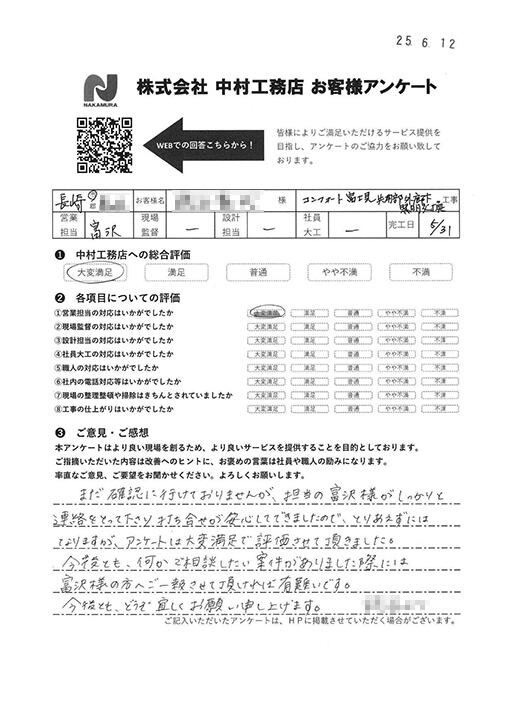 25. 6. 12
NAKAMURA
株式会社 中村工務店 お客様アンケート
WEBでの回答こちらから！
皆様によりご満足いただけるサービス提供を
目指し、アンケートのご協力をお願い致して
おります。
長崎 市 郡 お客様名 様 コンフォート富士見 共用部外廊下 照明 工事
営業担当 富沢 現場監督 ー 設計担当 ー 社員大工 ー 完工日 5/31
❶ 中村工務店への総合評価
大変満足 満足 普通 やや不満 不満
❷ 各項目についての評価
①営業担当の対応はいかがでしたか 大変満足 満足 普通 やや不満 不満
②現場監督の対応はいかがでしたか 大変満足 満足 普通 やや不満 不満
③設計担当の対応はいかがでしたか 大変満足 満足 普通 やや不満 不満
④社員大工の対応はいかがでしたか 大変満足 満足 普通 やや不満 不満
⑤職人の対応はいかがでしたか 大変満足 満足 普通 やや不満 不満
⑥社内の電話対応等はいかがでしたか 大変満足 満足 普通 やや不満 不満
⑦現場の整理整頓や掃除はきちんとされていましたか 大変満足 満足 普通 やや不満 不満
⑧工事の仕上がりはいかがでしたか 大変満足 満足 普通 やや不満 不満
❸ ご意見・ご感想
本アンケートはより良い現場を創るため、より良いサービスを提供することを目的としております。
ご指摘いただいた内容は改善へのヒントに、お褒めの言葉は社員や職人の励みになります。
率直なご意見、ご要望をお聞かせください。よろしくお願いします。
まだ確認に行けておりませんが、担当の富沢様がしっかりと
連絡をとって下さり打ち合せが安心してできましたので、とりあえずには
なりますが、アンケートは大変満足で評価させて頂きました。
今後とも、何かご相談したい案件がありました際には
富沢様の方へご一報させて頂ければ有難いです。
今後とも、どうぞ宜しくお願い申し上げます。
ご記入いただいたアンケートは、HPに掲載させていただく場合がございます。